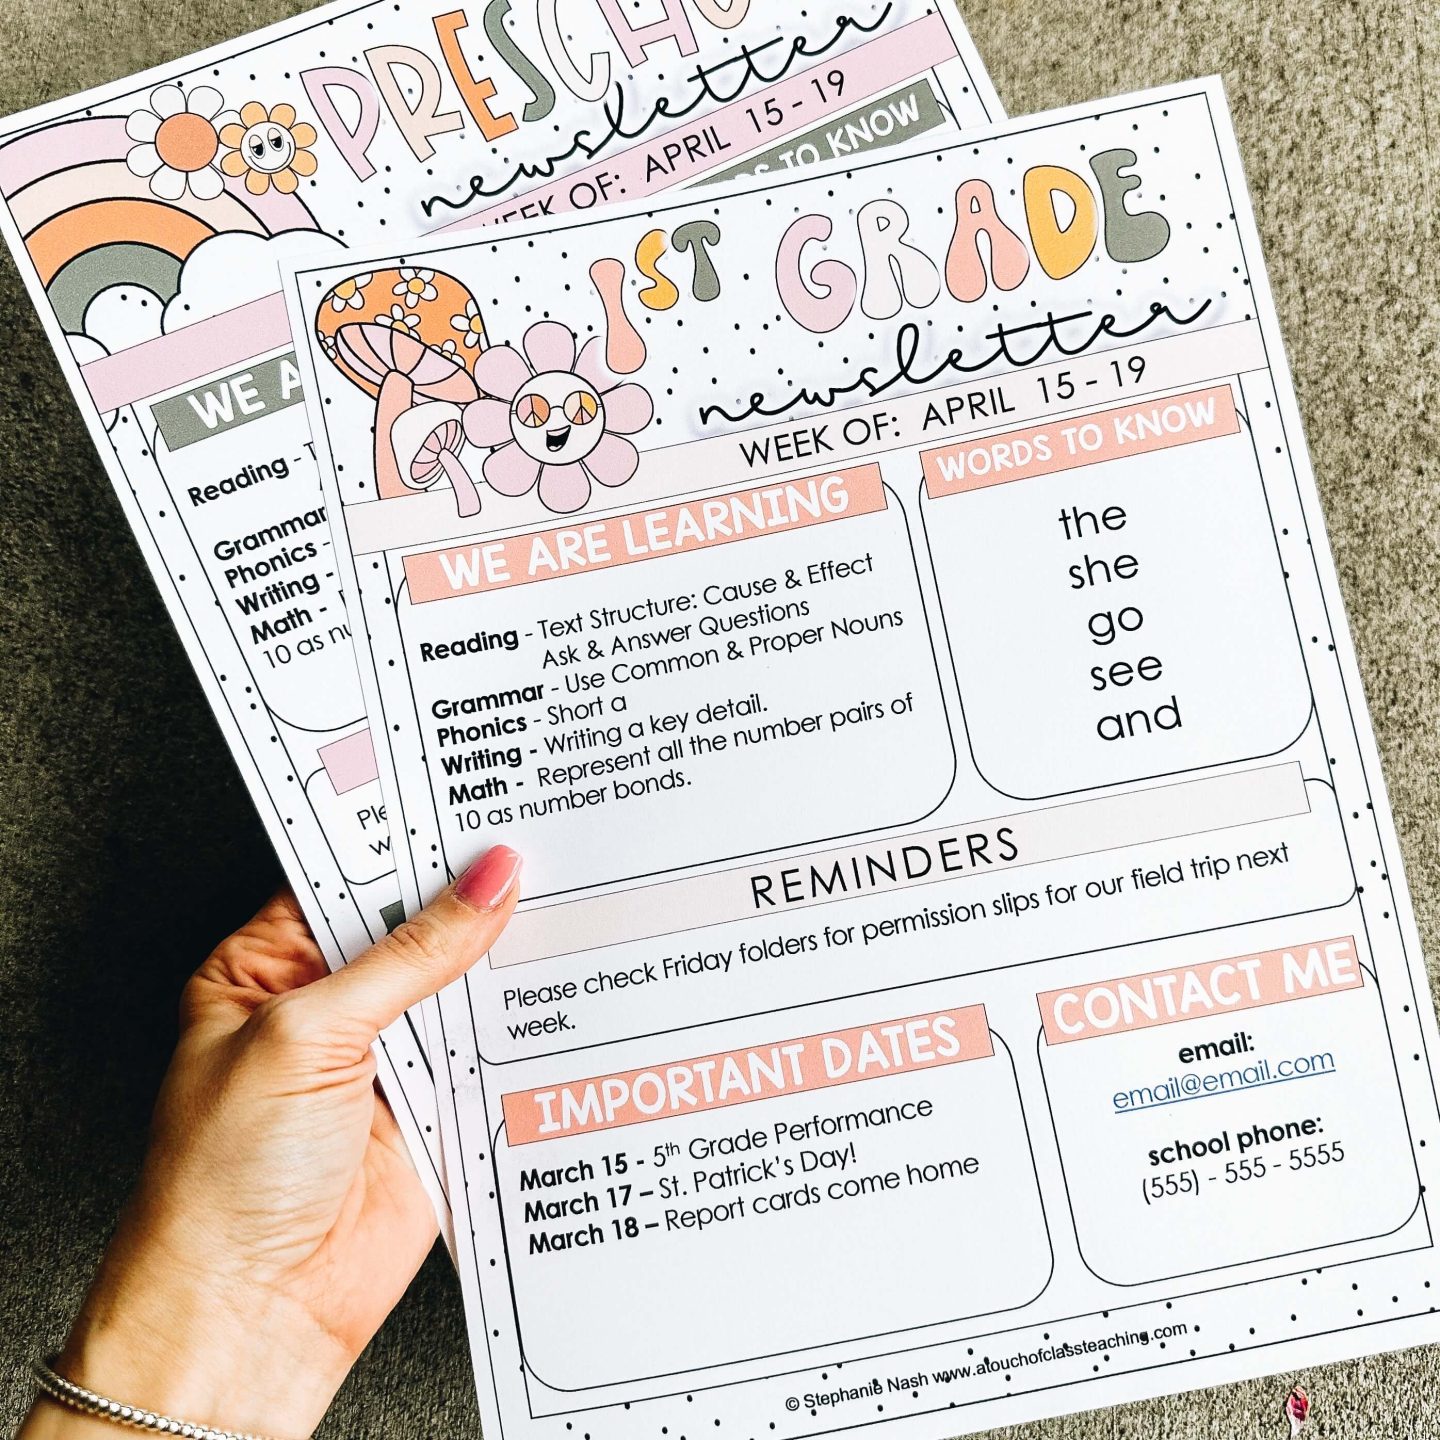 PRESCHO
newsletter
WEEK OF: APRIL 15 - 19
TO KNOW
WE A
Reading -
Grammar
Phonics -
Writing -
Math -
10 as nu
1ST GRADE
newsletter
WEEK OF: APRIL 15 - 19
WE ARE LEARNING
Reading - Text Structure: Cause & Effect
Ask & Answer Questions
Grammar - Use Common & Proper Nouns
Phonics - Short a
Writing - Writing a key detail.
Math - Represent all the number pairs of
10 as number bonds.
WORDS TO KNOW
the
she
go
see
and
REMINDERS
Please check Friday folders for permission slips for our field trip next
week.
IMPORTANT DATES
March 15 - 5th Grade Performance
March 17 – St. Patrick's Day!
March 18 – Report cards come home
CONTACT ME
email:
email@email.com
school phone:
(555) - 555 - 5555
© Stephanie Nash www.atouchofclassteaching.com